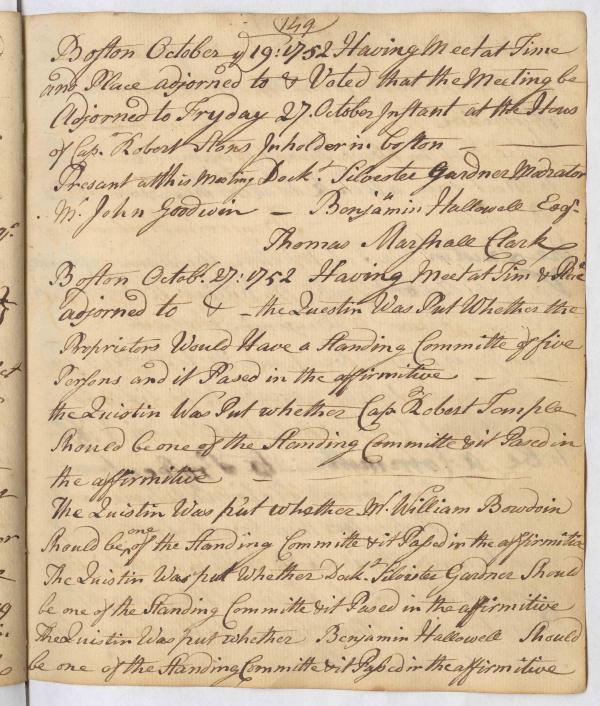 149
Boston October ye 19: 1752 Having Meet at Time
and Place adjorned to & Voted that the Meeting be
Adjorned to Fryday 27. October Instant at the Hous
of Cap. Robert Stons Inholder in boston
Presant at this Meeting Dockt. Silvester Gardner Modrator
Mr. John Goodwin — Benjamin Hallowell Esqr.
Thomas Marshall Clark
Boston Octobr. 27: 1752 Having Meet at Tim & Place
adjorned to & — the Questin Was Put Whether the
Proprietors Would Have a Standing Committe of five
Persons and it Pased in the affirmitive
the Quistin Was Put whether Cap. Robert Temple
Should be one of the Standing Committe & it Pased in
the affirmitive
The Quistin Was put whether Mr. William Bowdoin
Should be one of the Standing Committe & it Pased in the affirmitive
The Quistin Was put Whether Dockt. Silvister Gardner Should
be one of the Standing Committe & it Pased in the affirmitive
The Quistin Was put whether Benjamin Hallowell Should
be one of the Standing Committe & it Passed in the affirmitive